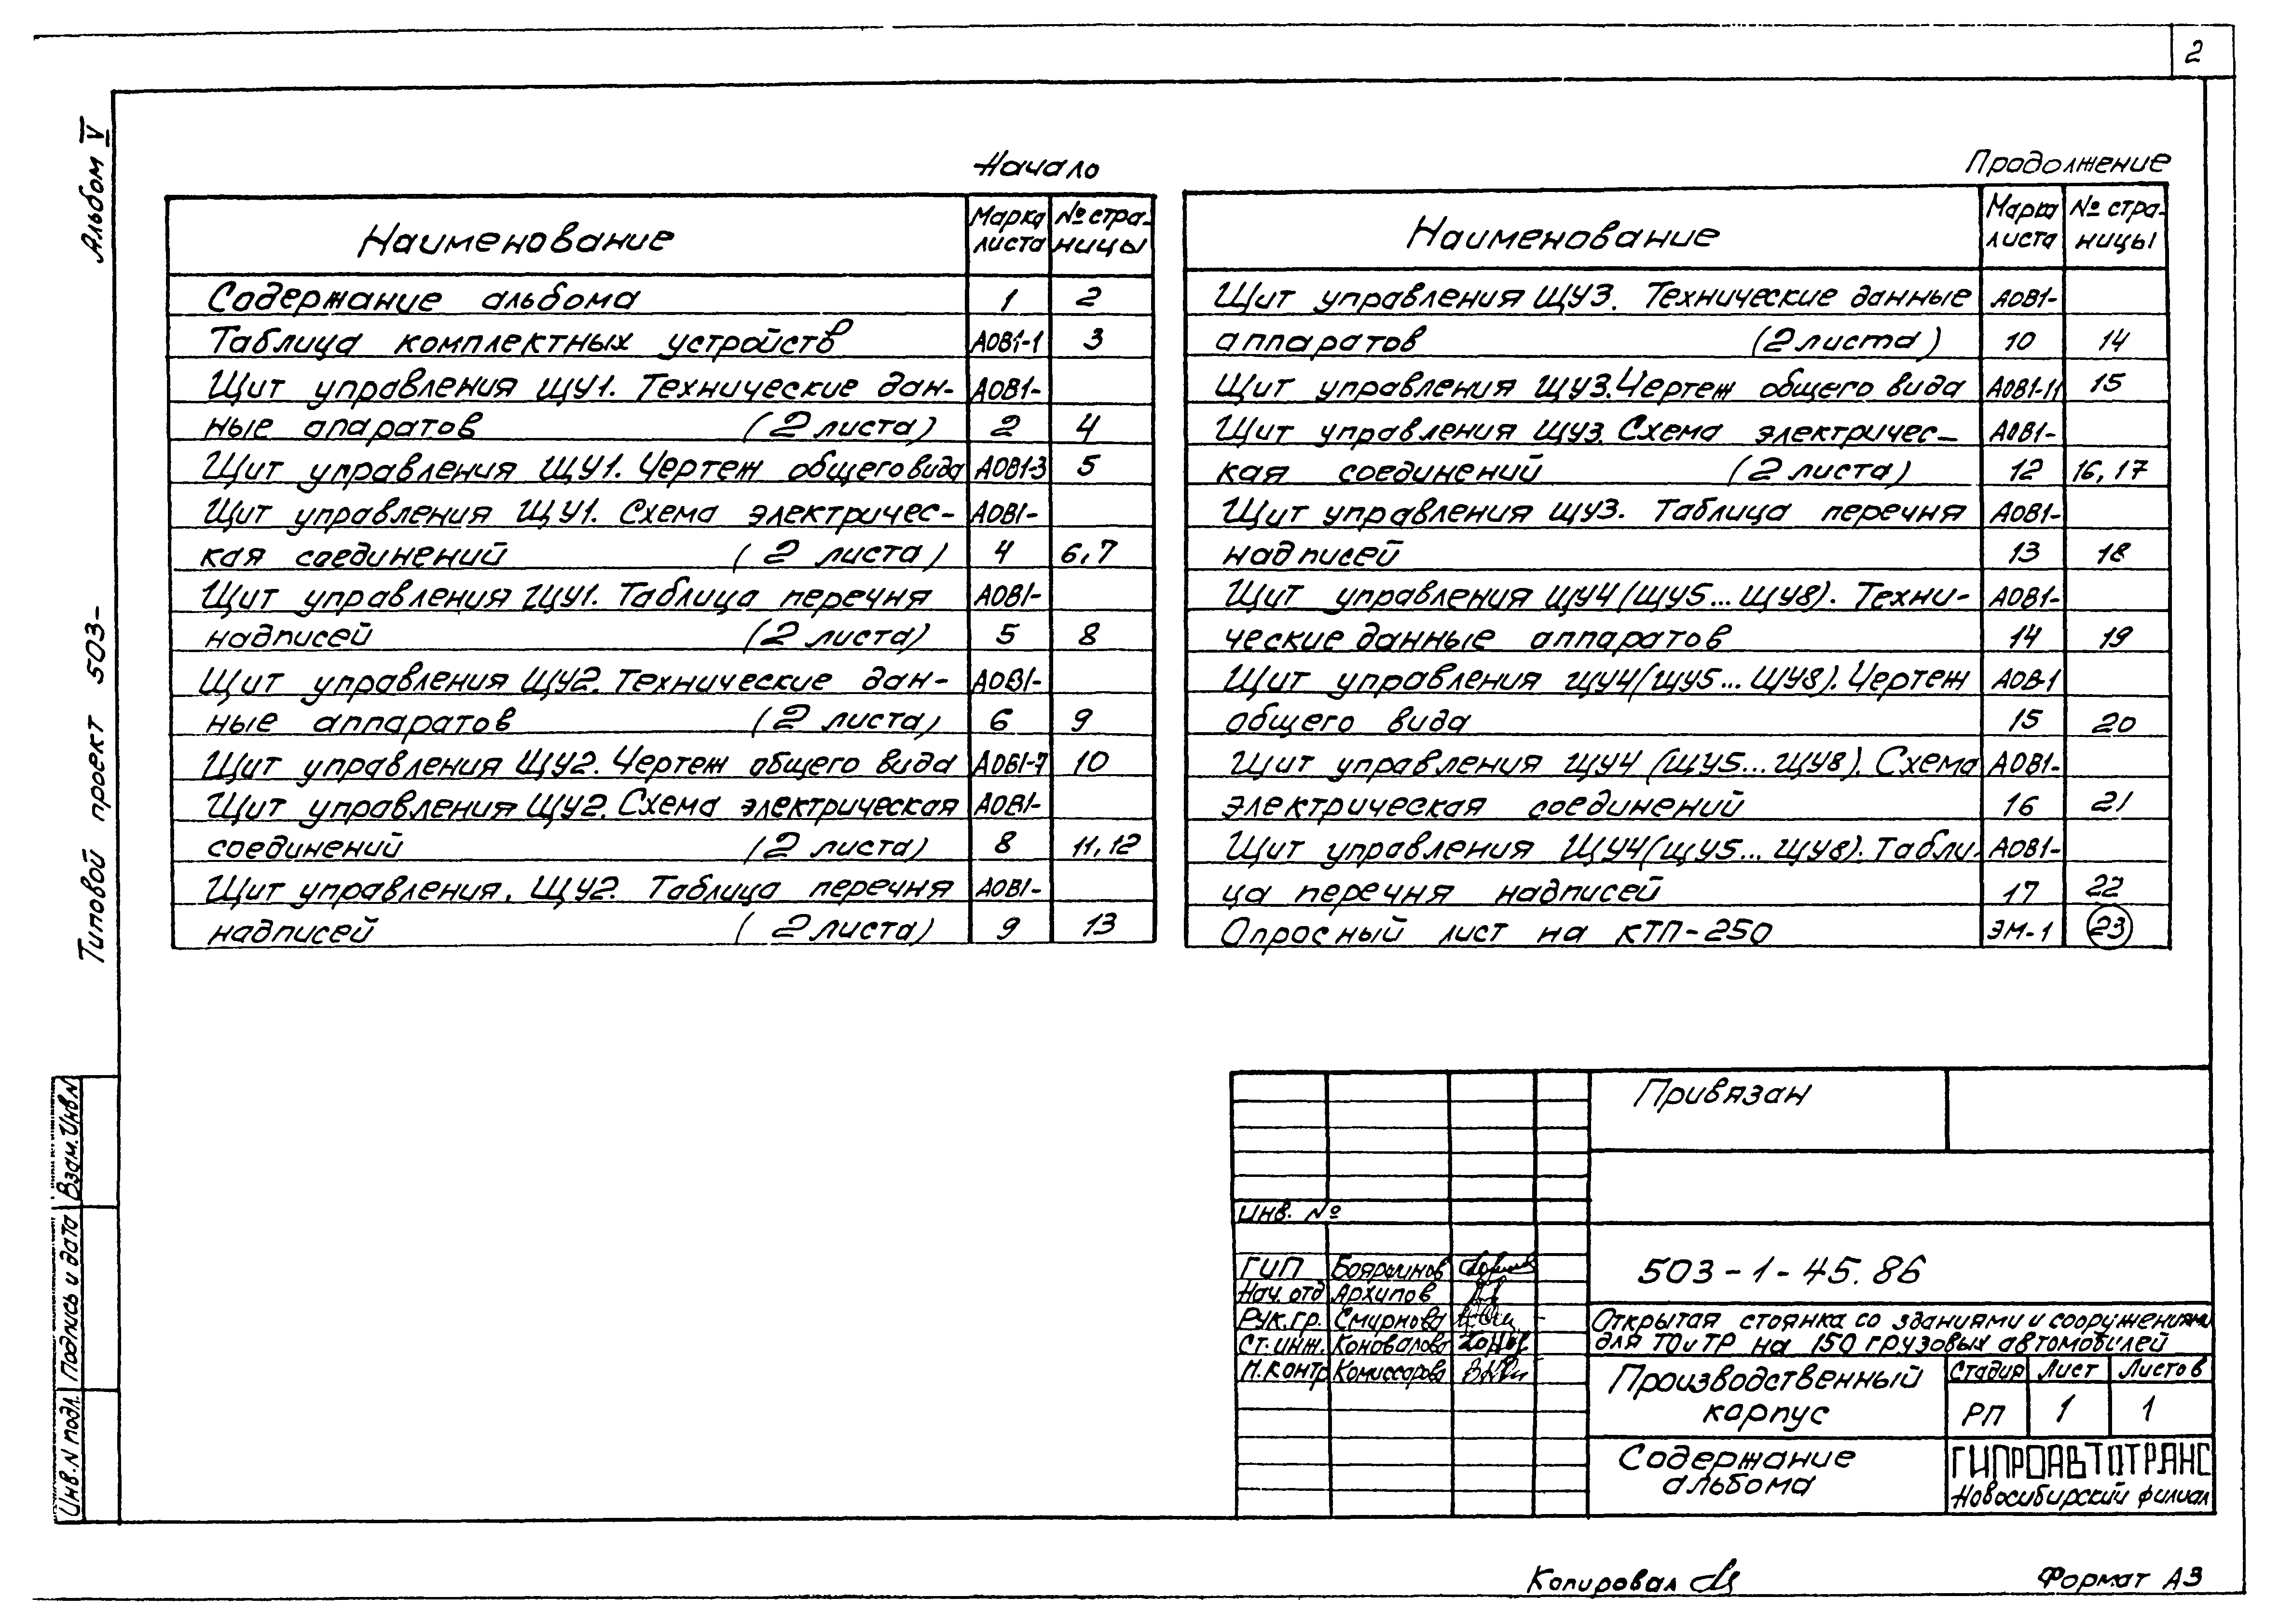 2
Альбом V
Типовой проект 503-
Начало
Наименование Марка листа № страницы
Содержание альбома 1 2
Таблица комплектных устройств АОВ1-1 3
Щит управления ЩУ1. Технические дан- АОВ1-
ные апаратов (2 листа) 2 4
Щит управления ЩУ1. Чертеж общего вида АОВ1-3 5
Щит управления ЩУ1. Схема электричес- АОВ1-
кая соединений (2 листа) 4 6,7
Щит управления ЩУ1. Таблица перечня АОВ1-
надписей (2 листа) 5 8
Щит управления ЩУ2. Технические дан- АОВ1-
ные аппаратов (2 листа) 6 9
Щит управления ЩУ2. Чертеж общего вида АОВ1-7 10
Щит управления ЩУ2. Схема электрическая АОВ1-
соединений (2 листа) 8 11,12
Щит управления, ЩУ2. Таблица перечня АОВ1-
надписей (2 листа) 9 13
Продолжение
Наименование Марка листа № страницы
Щит управления ЩУ3. Технические данные АОВ1-
аппаратов (2 листа) 10 14
Щит управления ЩУ3. Чертеж общего вида АОВ1-11 15
Щит управления ЩУ3. Схема электричес- АОВ1-
кая соединений (2 листа) 12 16,17
Щит управления ЩУ3. Таблица перечня АОВ1-
надписей 13 18
Щит управления ЩУ4 (ЩУ5...ЩУ8). Техни- АОВ1-
ческие данные аппаратов 14 19
Щит управления ЩУ4 (ЩУ5...ЩУ8). Чертеж АОВ-1
общего вида 15 20
Щит управления ЩУ4 (ЩУ5...ЩУ8). Схема АОВ1-
электрическая соединений 16 21
Щит управления ЩУ4 (ЩУ5...ЩУ8). Табли- АОВ1-
ца перечня надписей 17 22
Опросный лист на КТП-250 ЭМ-1 23
Взам. Инв.N
Подпись и дата
Инв.N подл.
Привязан
Инв. №
ГИП Бояршинов
Нач. отд Архипов
Рук. гр. Смирнова
Ст. инж. Коновалова
Н. контр Комиссарова
503-1-45.86
Открытая стоянка со зданиями и сооружениями
для ТО и ТР на 150 грузовых автомобилей
Производственный
корпус
Стадия Лист Листов
РП 1 1
Содержание
альбома
ГИПРОАВТОТРАНС
Новосибирский филиал
Копировал
Формат А3